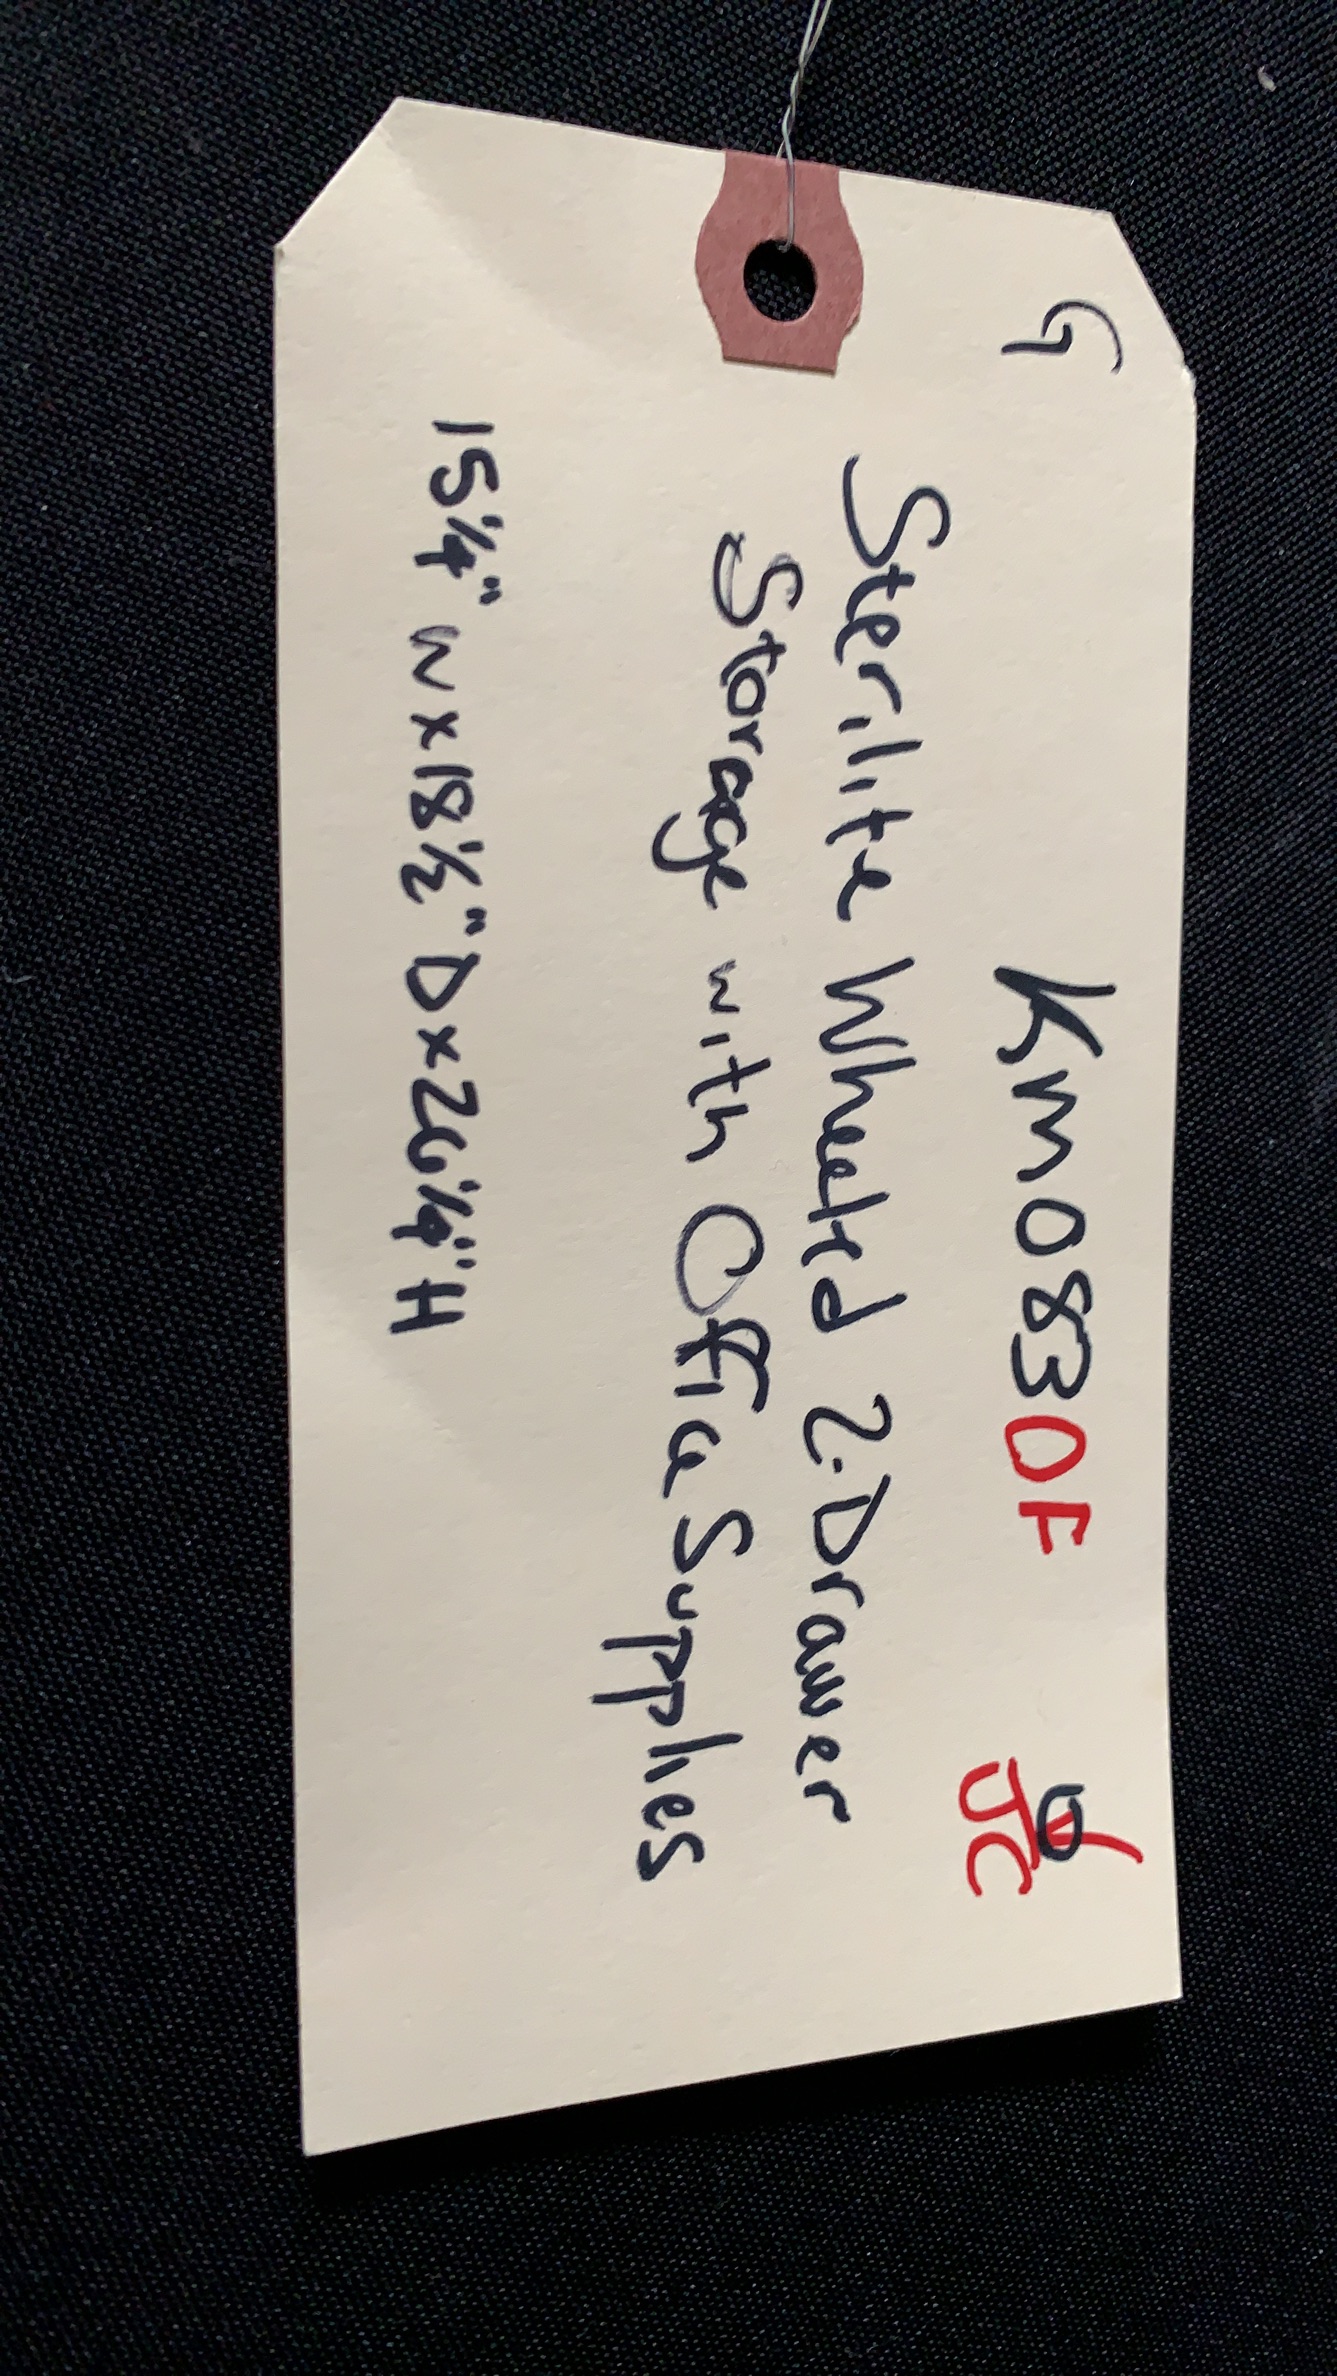 G KM0830F JC
Sterilite Wheeled 2-Drawer
Storage with Office Supplies
15 1/4" W x 18 1/2" D x 26 1/4" H